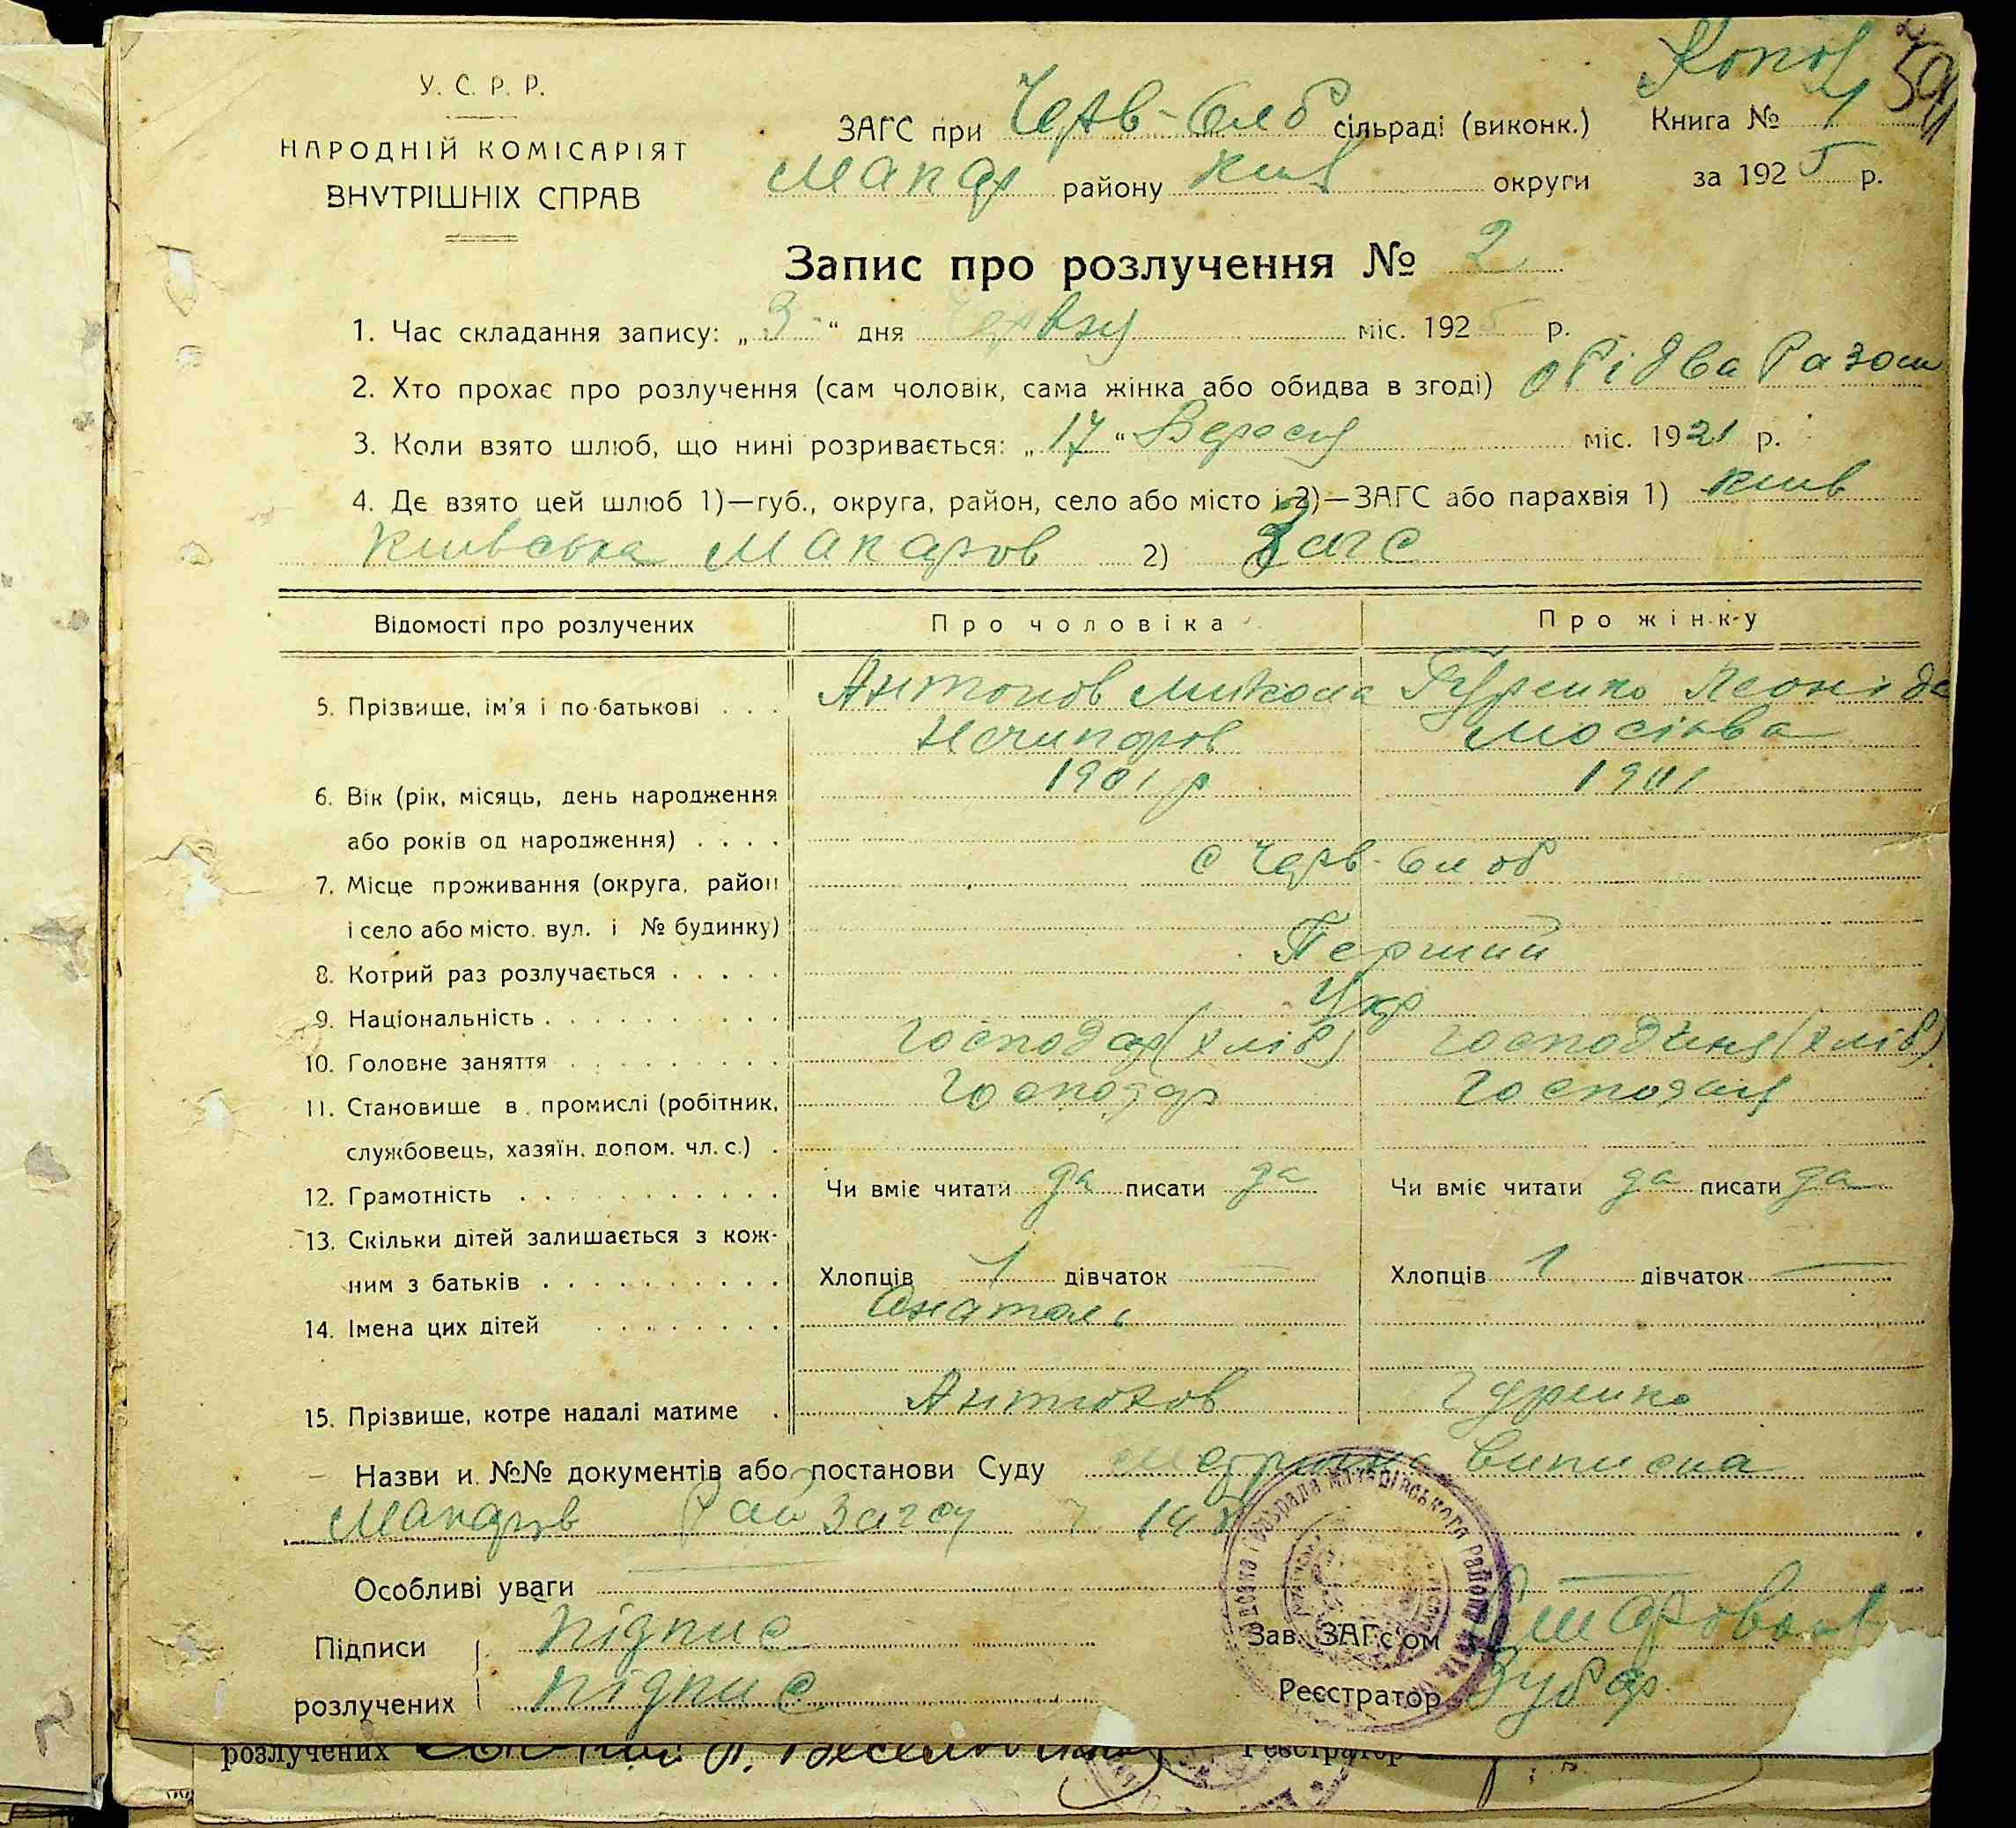 Копія
У. С. Р. Р.
НАРОДНІЙ КОМІСАРІЯТ
ВНУТРІШНІХ СПРАВ
ЗАГС при Черв-Слоб сільраді (виконк.) Книга № 1
Макар району Київ округи за 1925 р.
Запис про розлучення № 2
1. Час складання запису: „3" дня Червну міс. 1925 р.
2. Хто прохає про розлучення (сам чоловік, сама жінка або обидва в згоді) обідва разом
3. Коли взято шлюб, що нині розривається: „17" Вересну міс. 1921 р.
4. Де взято цей шлюб 1)—губ., округа, район, село або місто і 2)—ЗАГС або парахвія 1) Київ
Київська Макаров 2) Загс
Відомості про розлучених Про чоловіка Про жінку
5. Прізвище, ім'я і по-батькові . . . Антонов Микола Гуренко Леоніда
Нечипоров Мосієва
6. Вік (рік, місяць, день народження 1901 р 1901
або років од народження) . . . .
с Черв-Слоб
7. Місце проживання (округа, район
і село або місто, вул. і № будинку)
8. Котрий раз розлучається . . . . . Перший
9. Національність . . . . . . . . . . Укр
10. Головне заняття . . . . . . . . . Господар (хліб) Господиня (хліб)
11. Становище в промислі (робітник, Господар Господиня
службовець, хазяїн, допом. чл. с.) .
12. Грамотність . . . . . . . . . . . Чи вміє читати да писати да Чи вміє читати да писати да
13. Скільки дітей залишається з кож-
ним з батьків . . . . . . . . . . Хлопців 1 дівчаток — Хлопців 1 дівчаток —
14. Імена цих дітей . . . . . . . . Анатоль
15. Прізвище, котре надалі матиме . Антонов Гуренко
Назви и №№ документів або постанови Суду метрична виписка
Макаров Рай Загсу
Особливі уваги
Підписи підпис Зав. ЗАГС'ом
розлучених підпис Реєстратор Зубар
розлучених Реєстратор